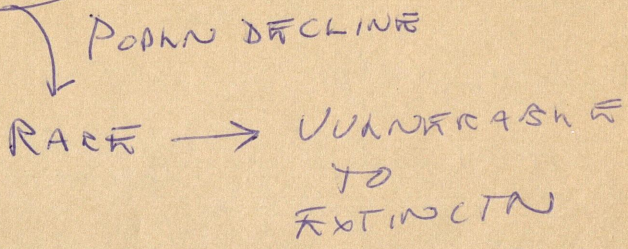 POPLN DECLINE
RARE → VULNERABLE
TO
EXTINCTN